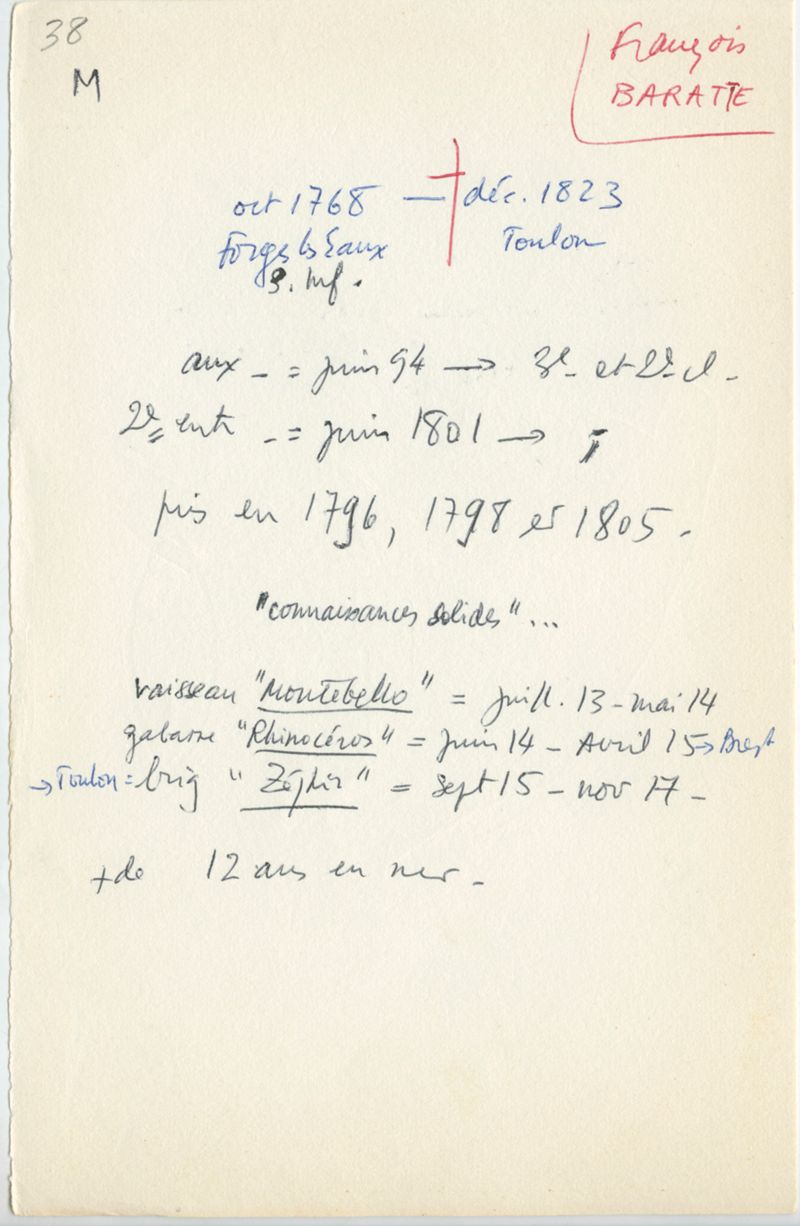 38
M
François
BARATTE
oct 1768 — † déc. 1823
Forges les Eaux Toulon
S. Inf.
aux - = juin 94 → 3e - et 2e cl -
2e entr - = juin 1801 →
pris en 1796, 1798 et 1805.
"connaissances solides"...
vaisseau "Montebello" = juill. 13 - mai 14
gabarre "Rhinocéros" = juin 14 - Avril 15 → Brest
→ Toulon = brig "Zéphir" = sept 15 - nov 17 -
+ de 12 ans en mer -